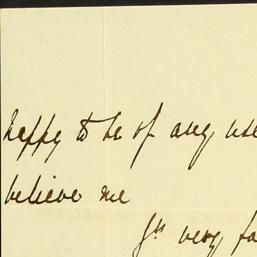 happy to be of any use
believe me
Yrs very fa